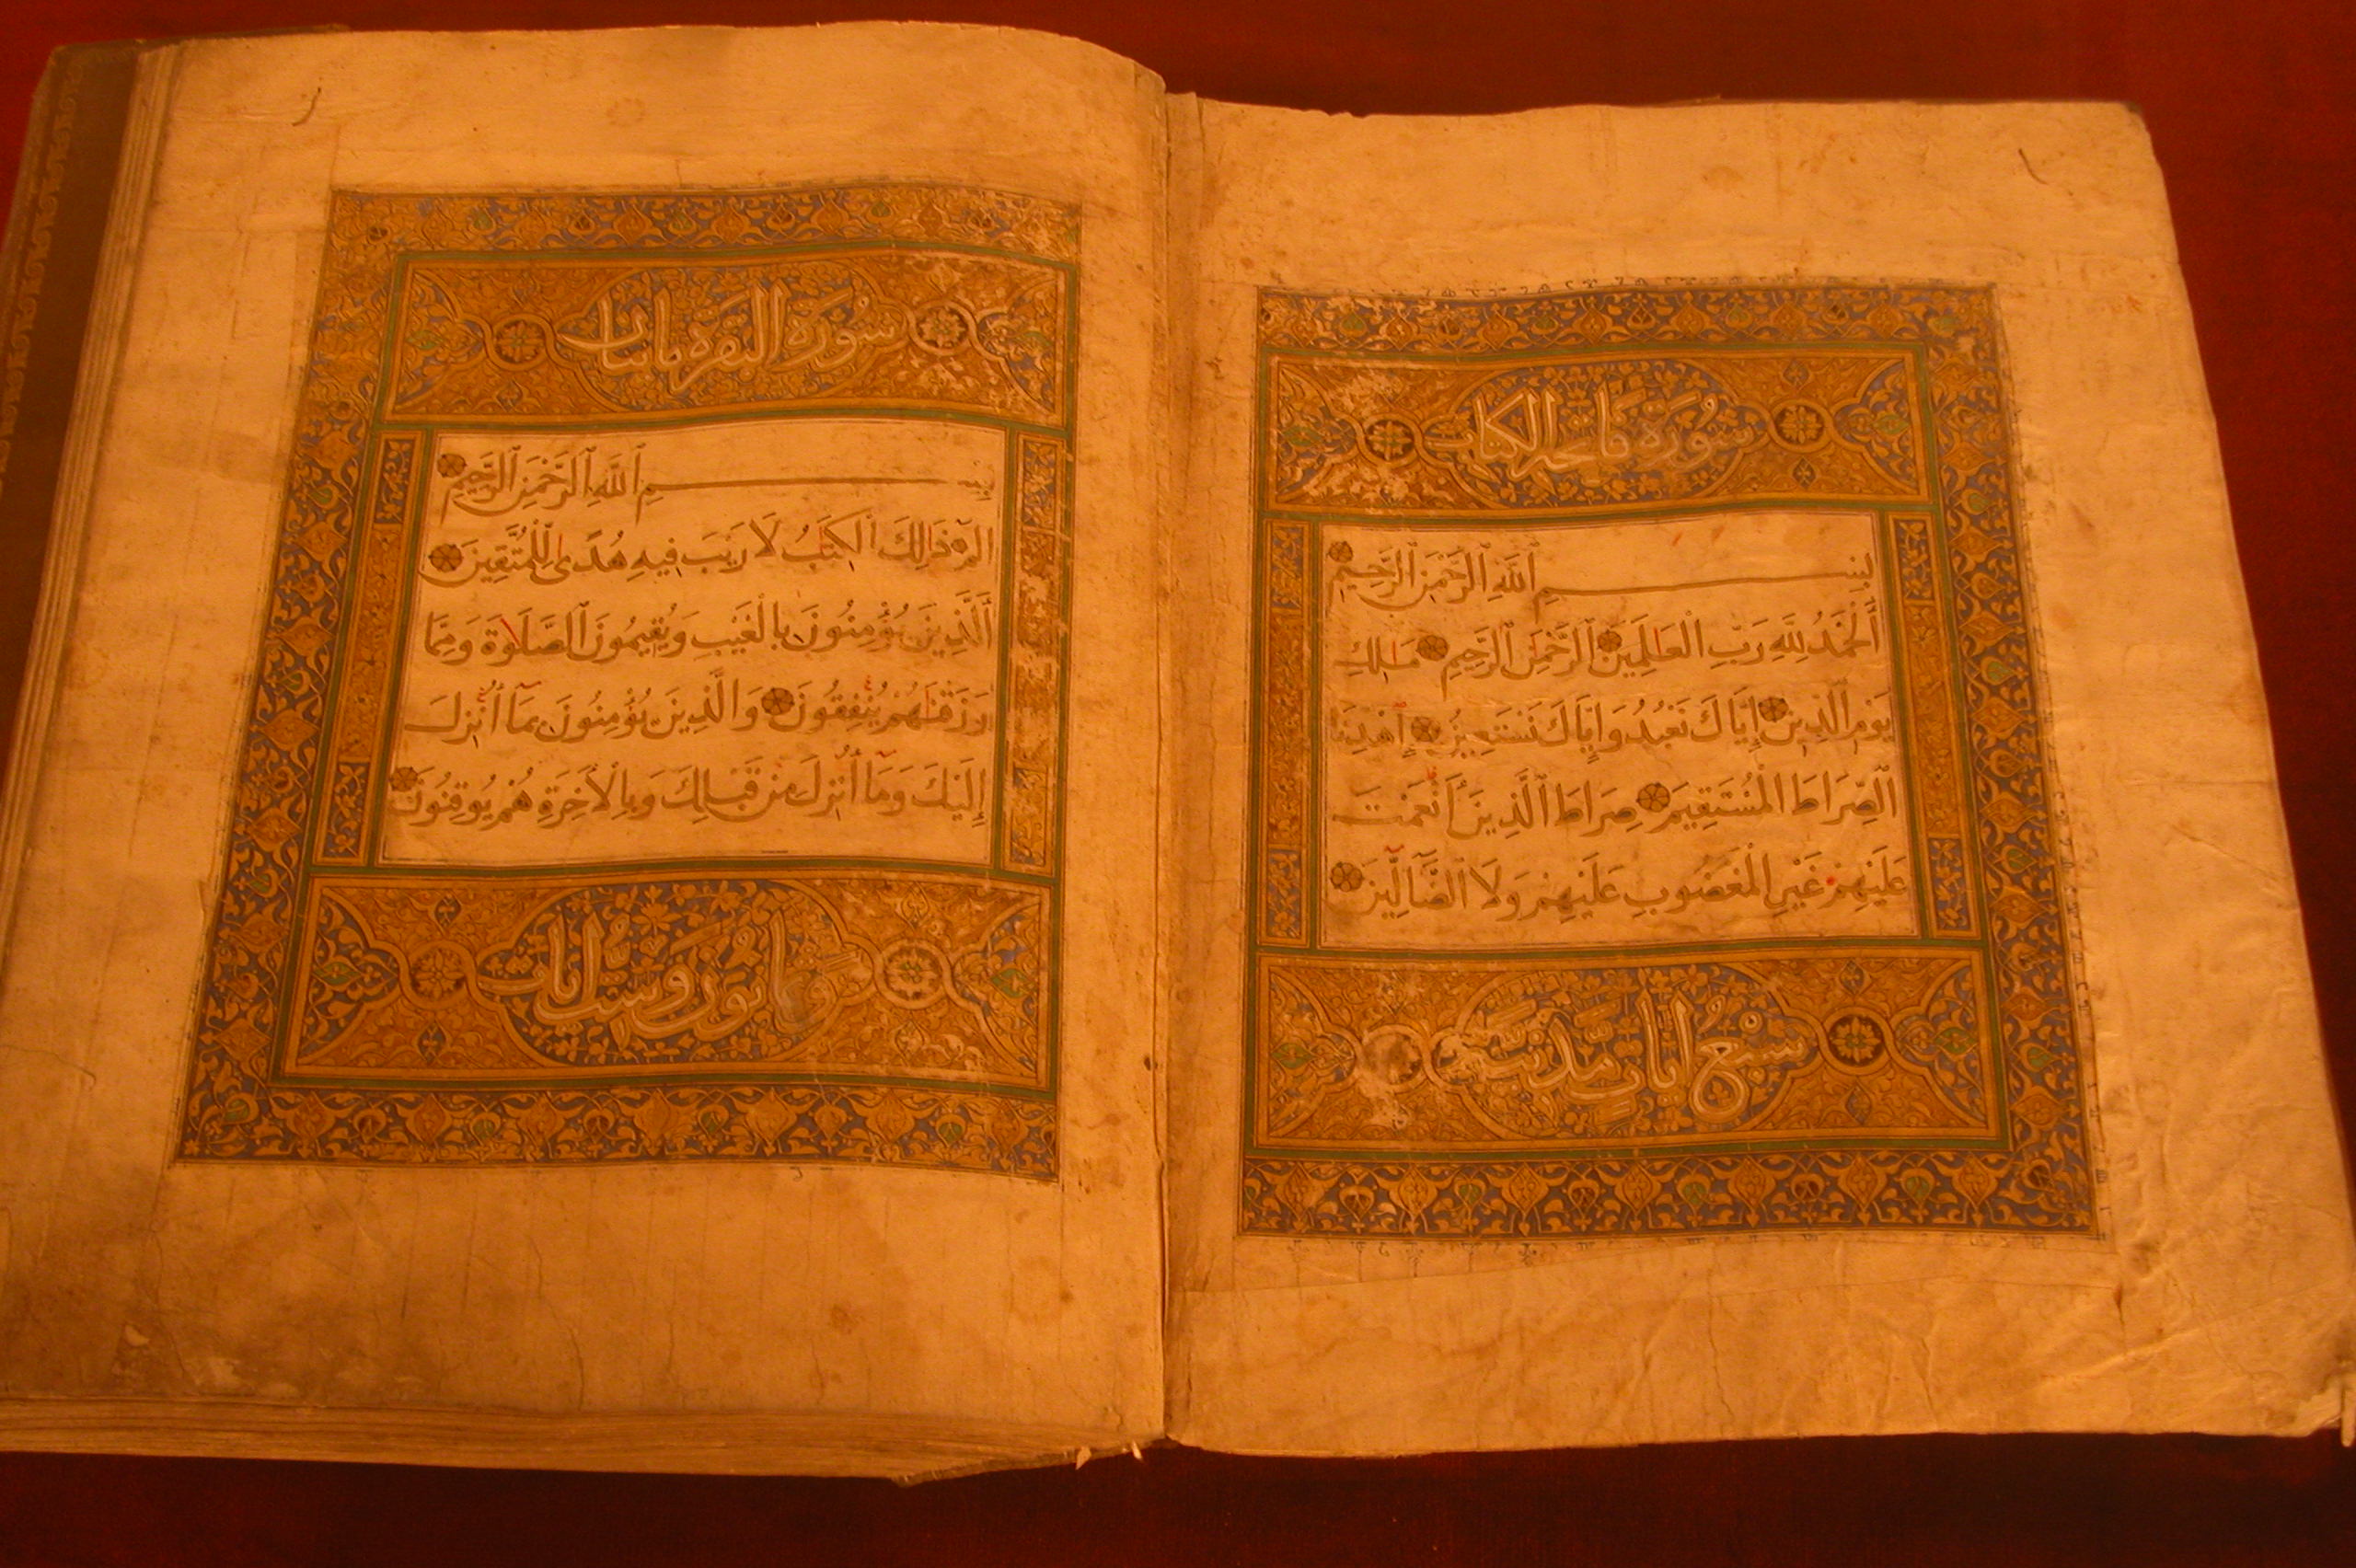 سورة فاتحة الكتاب
بِسْمِ ٱللَّهِ ٱلرَّحْمَٰنِ ٱلرَّحِيمِ
أَلْحَمْدُ لِلَّهِ رَبِّ ٱلْعَٰلَمِينَ ٱلرَّحْمَٰنِ ٱلرَّحِيمِ مَٰلِكِ
يَوْمِ ٱلدِّينِ إِيَّاكَ نَعْبُدُ وَإِيَّاكَ نَسْتَعِينُ إِهْدِنَا
ٱلصِّرَاطَ ٱلْمُسْتَقِيمَ صِرَاطَ ٱلَّذِينَ أَنْعَمْتَ
عَلَيْهِمْ غَيْرِ ٱلْمَغْضُوبِ عَلَيْهِمْ وَلَا ٱلضَّآلِّينَ
سبع ايات مدنية
سورة البقرة مائتان
بِسْمِ ٱللَّهِ ٱلرَّحْمَٰنِ ٱلرَّحِيمِ
الٓمٓ ذَٰلِكَ ٱلْكِتَٰبُ لَا رَيْبَ فِيهِ هُدًى لِّلْمُتَّقِينَ
أَلَّذِينَ يُؤْمِنُونَ بِالْغَيْبِ وَيُقِيمُونَ ٱلصَّلَاوةَ وَمِمَّا
رَزَقْنَٰهُمْ يُنْفِقُونَ وَالَّذِينَ يُؤْمِنُونَ بِمَآ أُنْزِلَ
إِلَيْكَ وَمَآ أُنْزِلَ مِنْ قَبْلِكَ وَبِالْأَخِرَةِ هُمْ يُوقِنُونَ
وثمانون وست ايات